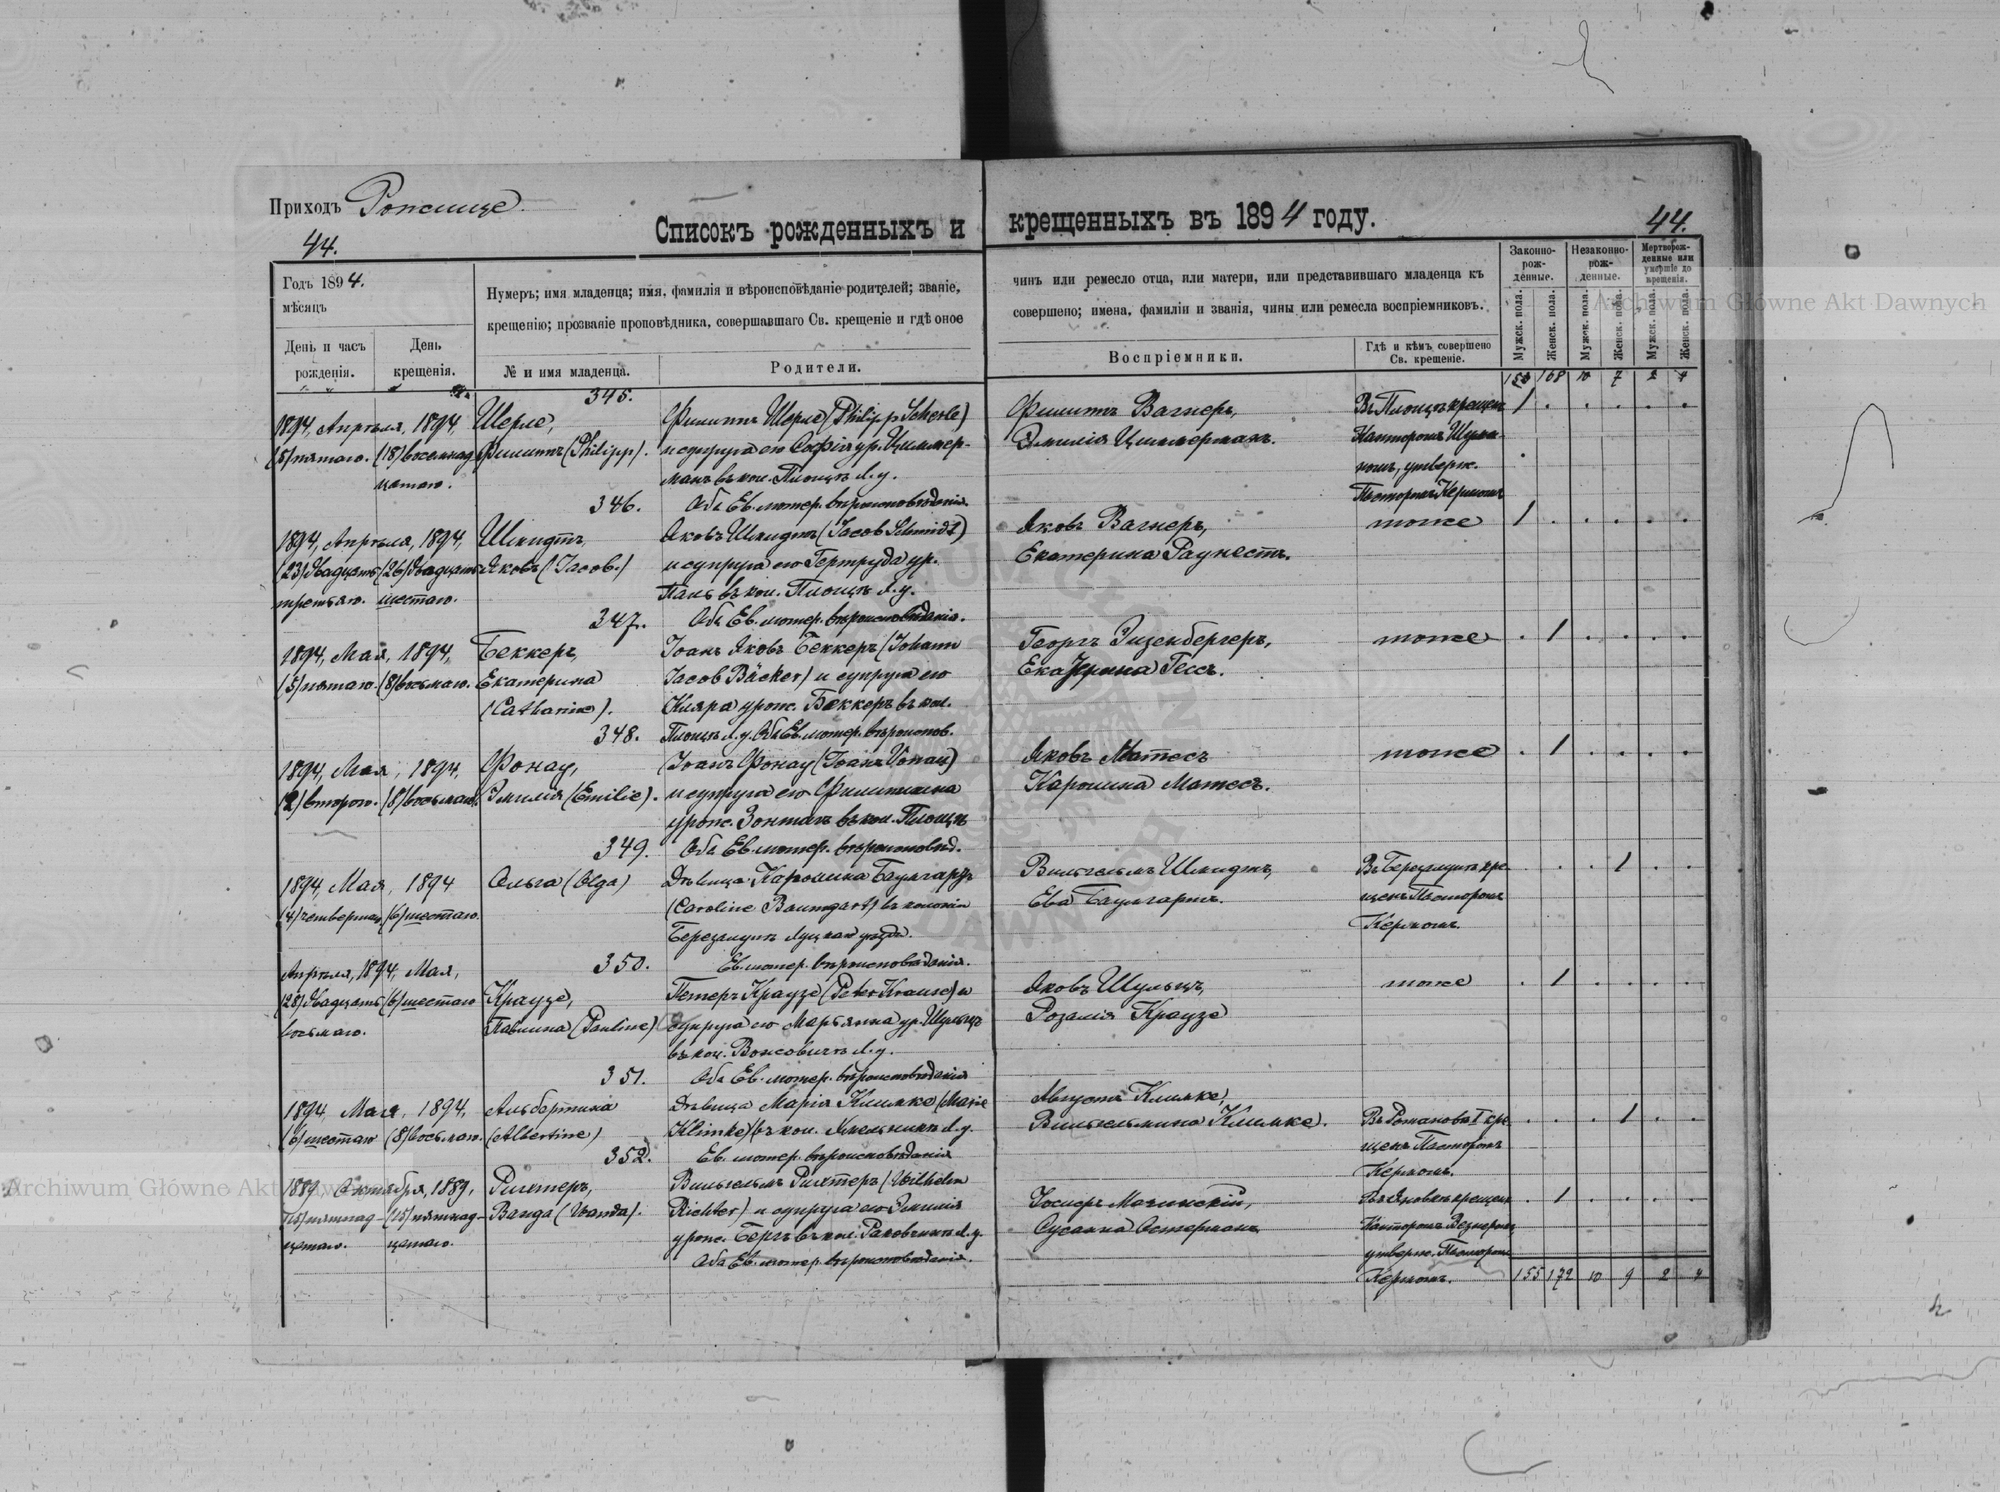 Приходъ Рожище.
44.
Списокъ рожденныхъ и крещенныхъ въ 1894 году.
44.
Годъ 1894.
мѣсяцъ
Нумеръ; имя младенца; имя, фамилія и вѣроисповѣданіе родителей; званіе,
чинъ или ремесло отца, или матери, или представившаго младенца къ
крещенію; прозваніе проповѣдника, совершавшаго Св. крещеніе и гдѣ оное
совершено; имена, фамиліи и званія, чины или ремесла воспріемниковъ.
День и часъ рожденія.
День крещенія.
№ и имя младенца.
Родители.
Воспріемники.
Гдѣ и кѣмъ совершено Св. крещеніе.
Законно-рож-денные.
Незаконно-рож-денные.
Мертворож-денные или умершіе до крещенія.
Мужск. пола.
Женск. пола.
Мужск. пола.
Женск. пола.
Мужск. пола.
Женск. пола.
153 168 10 7 2 4
345.
1894, Апрѣля, 1894,
(5) пятаго. (18) восемнад-
цатаго.
Шерле,
Филиппъ (Philipp).
Филиппъ Шерле (Philipp Scherle)
и супруга его Софія ур. Циммер-
манъ въ кол. Площъ л. у.
Оба Ев. лютер. вѣроисповѣданія.
Филиппъ Вагнеръ,
Эмилія Циммерманъ.
Въ Площъ крещен
Канторомъ Шума-
номъ, утверж.
Пасторомъ Керномъ
1
346.
1894, Апрѣля, 1894,
(23) двадцать (26) двадцать
третьяго. шестаго.
Шмидтъ,
Яковъ (Jacob.)
Яковъ Шмидтъ (Jacob Schmidt)
и супруга его Гертруда ур.
Паль въ кол. Площъ л. у.
Оба Ев. лютер. вѣроисповѣданія.
Яковъ Вагнеръ,
Екатерина Раунестъ.
тоже
1
347.
1894, Мая, 1894,
(5) пятаго. (8) восьмаго.
Беккеръ,
Екатерина
(Catharine).
Іоанъ Яковъ Беккеръ (Johann
Jacob Bäcker) и супруга его
Клара урож. Беккеръ въ кол.
Площъ л. у. Оба Ев. лютер. вѣроисповѣд.
Георгъ Эйзенбергеръ,
Екатерина Гессъ.
тоже
1
348.
1894, Мая, 1894,
(2) втораго. (8) восьмаго.
Фонау,
Эмилія (Emilie).
Іоанъ Фонау (Joann Vonau)
и супруга его Филиппина
урож. Зонтагъ въ кол. Площъ
Оба Ев. лютер. вѣроисповѣд.
Яковъ Матесъ
Каролина Матесъ.
тоже
1
349.
1894, Мая, 1894
(4) четвертаго (6) шестаго.
Ольга (Olga)
Дѣвица Каролина Баумгартъ
(Caroline Baumgart) въ колоніи
Березолупъ Луцкаго уѣзда.
Ев. лютер. вѣроисповѣданія.
Вильгельмъ Шмидтъ,
Ева Баумгартъ.
Въ Березолупѣ кре-
щенъ Пасторомъ
Керномъ.
1
350.
Апрѣля, 1894, Мая,
(28) двадцать (6) шестаго
восьмаго.
Краузе,
Павлина (Pauline)
Петеръ Краузе (Peter Krause) и
супруга его Марьянна ур. Шульцъ
въ кол. Воксовичъ л. у.
Оба Ев. лютер. вѣроисповѣданія
Яковъ Шульцъ,
Розалія Краузе
тоже
1
351.
1894, Мая, 1894,
(6) шестаго (8) восьмаго.
Альбертина
(Albertine)
Дѣвица Марія Климке (Marie
Klimke) въ кол. Амельникъ л. у.
Ев. лютер. вѣроисповѣданія
Августъ Климке,
Вильгельмина Климке.
Въ Романовъ I кре-
щенъ Пасторомъ
Керномъ.
1
352.
1889, Октября, 1889,
(15) пятнад- (15) пятнад-
цатаго. цатаго.
Рихтеръ,
Ванда (Wanda).
Вильгельмъ Рихтеръ (Wilhelm
Richter) и супруга его Эмилія
урож. Бергъ въ кол. Раковчикъ л. у.
Оба Ев. лютер. вѣроисповѣданія.
Іосифъ Мочинскій,
Сусанна Остерманъ
Въ Яновкѣ крещен
Канторомъ
утверж. Пасторомъ
Керномъ.
1
155 172 10 9 2 4
Archiwum Główne Akt Dawnych
Archiwum Główne Akt Dawnych